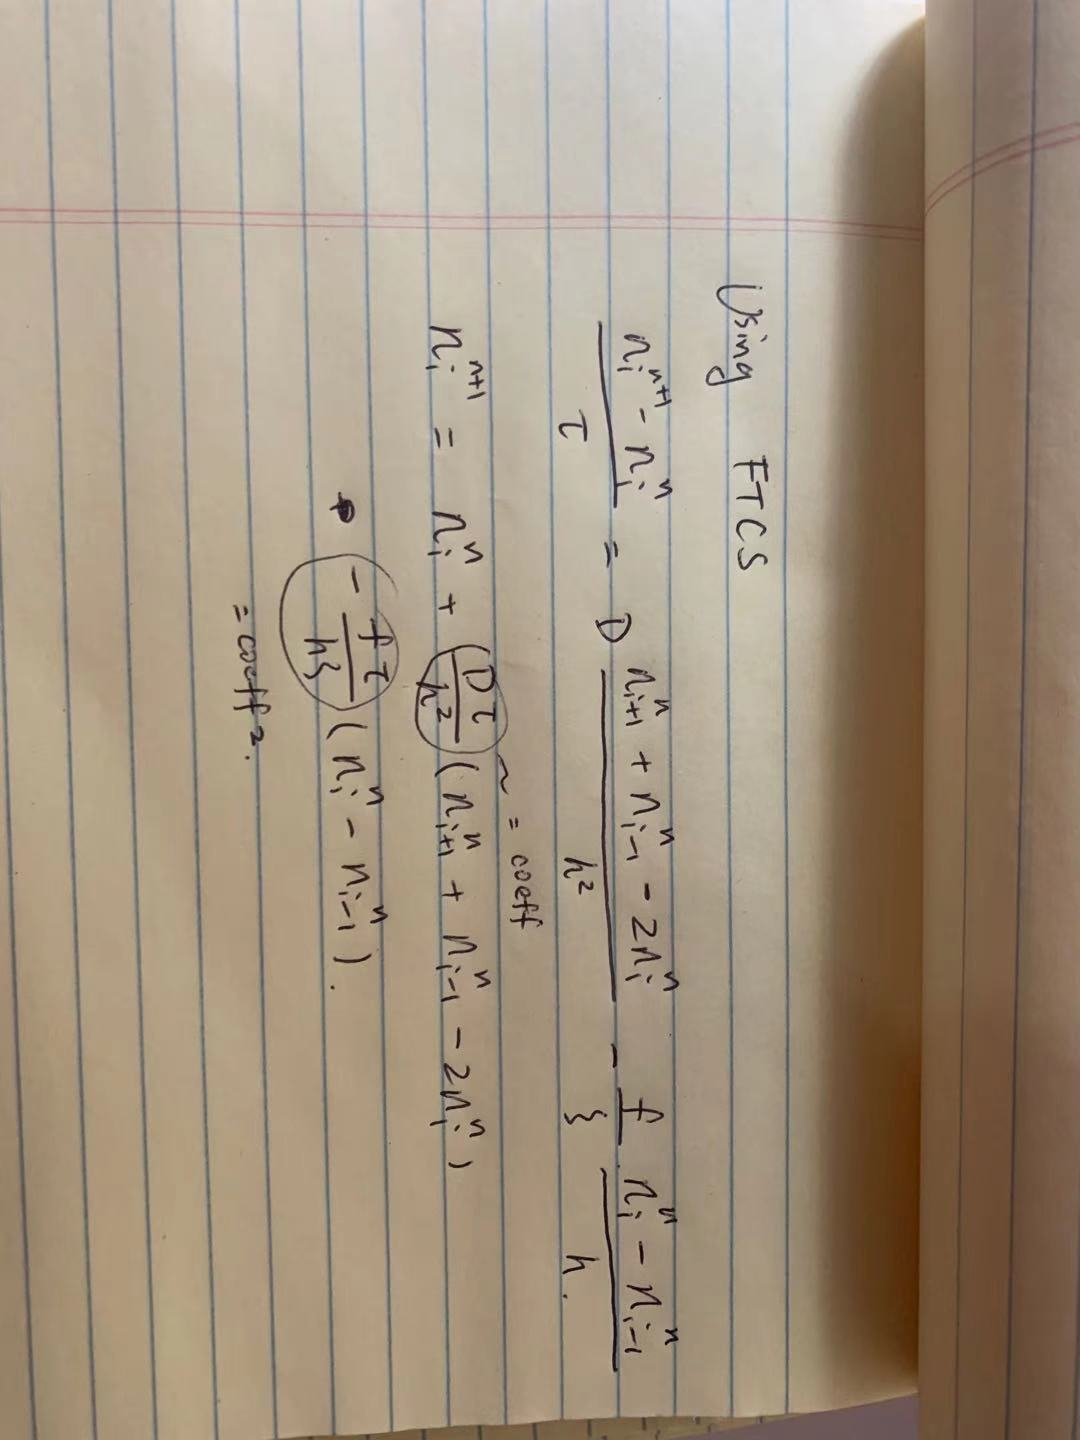 Using FTCS
(n_i^{n+1} - n_i^n)/τ = D (n_{i+1}^n + n_{i-1}^n - 2n_i^n)/h² - f/ξ (n_i^n - n_{i-1}^n)/h.
= coeff
n_i^{n+1} = n_i^n + (Dτ/h²)(n_{i+1}^n + n_{i-1}^n - 2n_i^n)
- fτ/hξ (n_i^n - n_{i-1}^n).
= coeff 2.